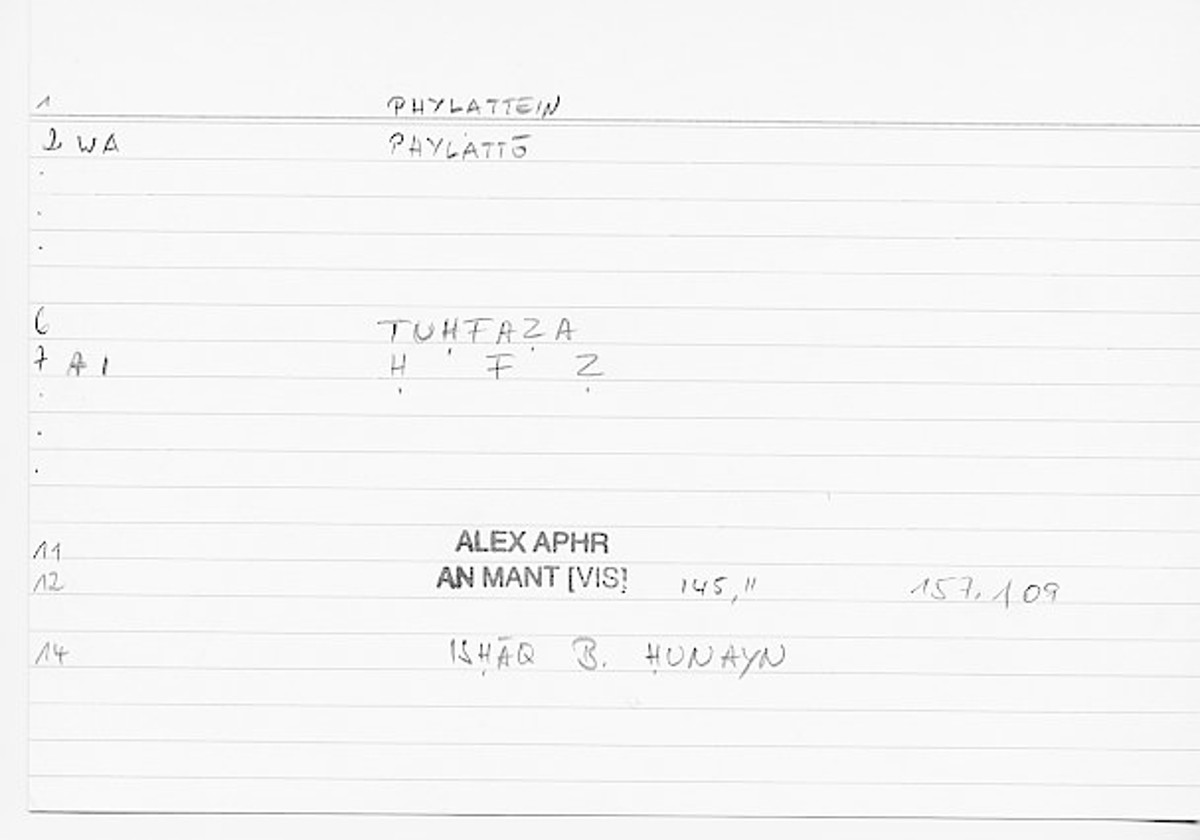 1 PHYLATTEIN
2 WA PHYLATTŌ
.
.
.
6 TUḤFAẒA
7 A 1 Ḥ F Ẓ
.
.
.
11 ALEX APHR
12 AN MANT [VIS] 145,11 157.109
14 ISḤĀQ B. ḤUNAYN